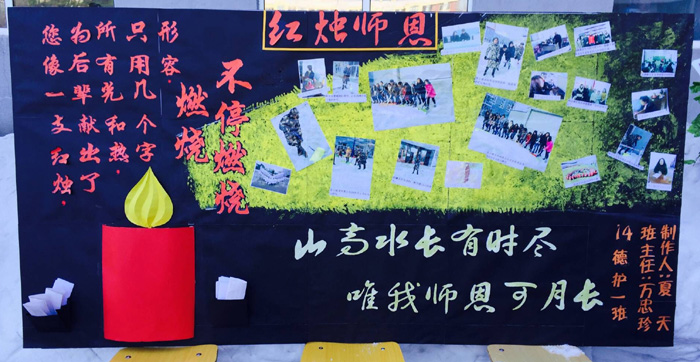 红烛师恩
您像一支红烛，
为后辈献出了
所有光和热，
只用几个字
形容，
燃烧
不停燃烧
山高水长有时尽
唯我师恩可月长
14德护一班
班主任:万忠珍
制作人:夏天